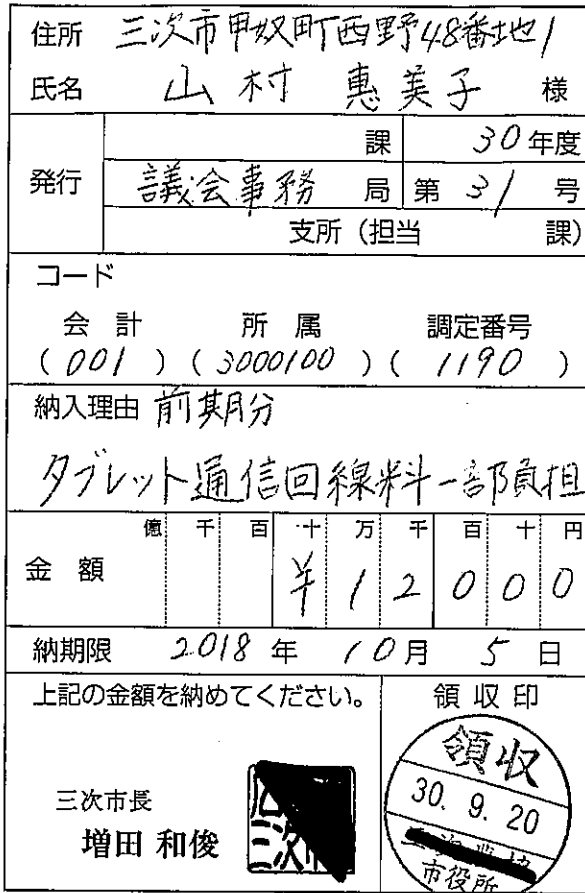 住所 三次市甲奴町西野48番地1
氏名 山村 惠美子 様
課 30年度
発行 議会事務 局 第 31 号
支所(担当 課)
コード
会計 所属 調定番号
(001)(3000100)(1190)
納入理由 前期分
タブレット通信回線料一部負担
億 千 百 十 万 千 百 十 円
金額 ¥12000
納期限 2018年 10月 5日
上記の金額を納めてください。 領収印
三次市長
増田 和俊
三次
領収
30.9.20
市役所